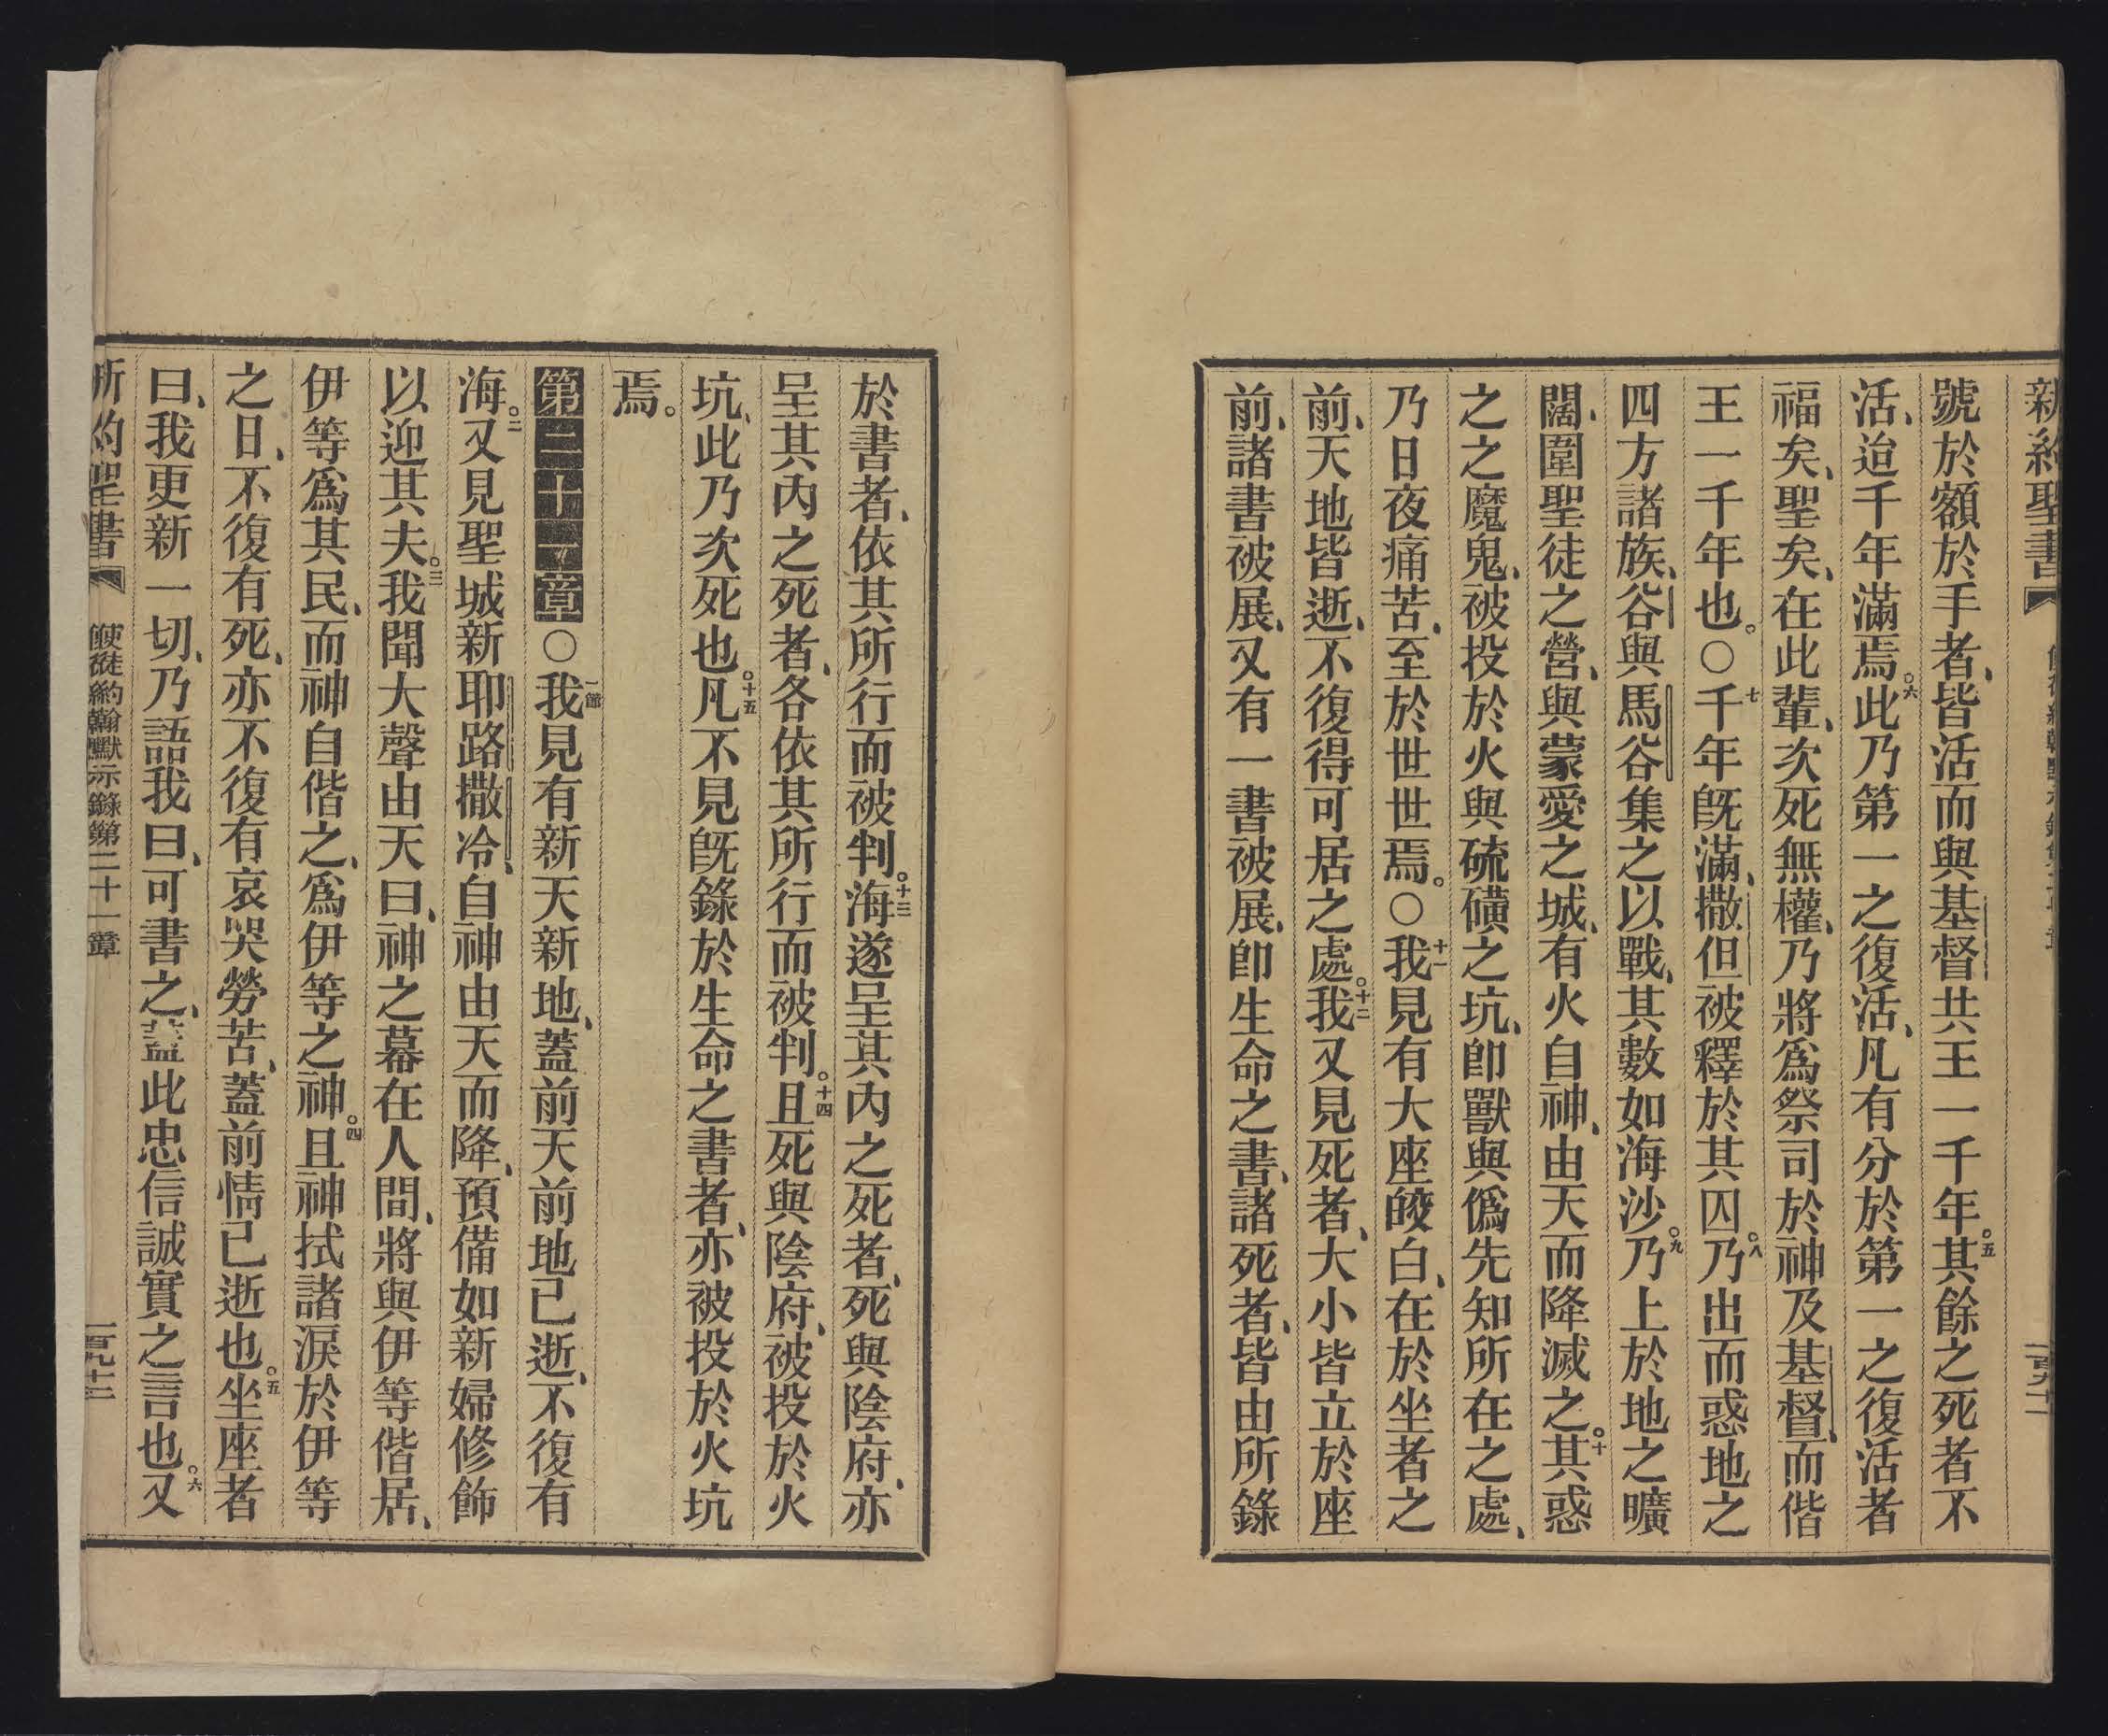 新約聖書
號於額於手者、皆活而與基督共王一千年。五其餘之死者不
活、迨千年滿焉。六此乃第一之復活、凡有分於第一之復活者
福矣、聖矣、在此輩、次死無權、乃將爲祭司於神及基督、而偕
王一千年也。○七千年旣滿、撒但被釋於其囚。八乃出而惑地之
四方諸族、谷與馬谷集之以戰、其數如海沙。九乃上於地之曠
闊、圍聖徒之營、與蒙愛之城、有火自神、由天而降滅之。十其惑
之之魔鬼、被投於火與硫磺之坑、卽獸與僞先知所在之處、
乃日夜痛苦、至於世世焉。○十一我見有大座皎白、在於坐者之
前、天地皆逝、不復得可居之處。十二我又見死者、大小皆立於座
前、諸書被展、又有一書被展、卽生命之書、諸死者、皆由所錄
於書者、依其所行而被判。十三海遂呈其內之死者、死與陰府、亦
呈其內之死者、各依其所行而被判。十四且死與陰府、被投於火
坑、此乃次死也。十五凡不見旣錄於生命之書者、亦被投於火坑
焉。
第二十一章○一節我見有新天新地、蓋前天前地已逝、不復有
海。二又見聖城新耶路撒冷、自神由天而降、預備如新婦修飾
以迎其夫。三我聞大聲由天曰、神之幕在人間、將與伊等偕居、
伊等爲其民、而神自偕之、爲伊等之神。四且神拭諸淚於伊等
之目、不復有死、亦不復有哀哭勞苦、蓋前情已逝也。五坐座者
曰、我更新一切、乃語我曰、可書之、蓋此忠信誠實之言也。六又
新約聖書 使徒約翰默示錄第二十一章 一百九十二